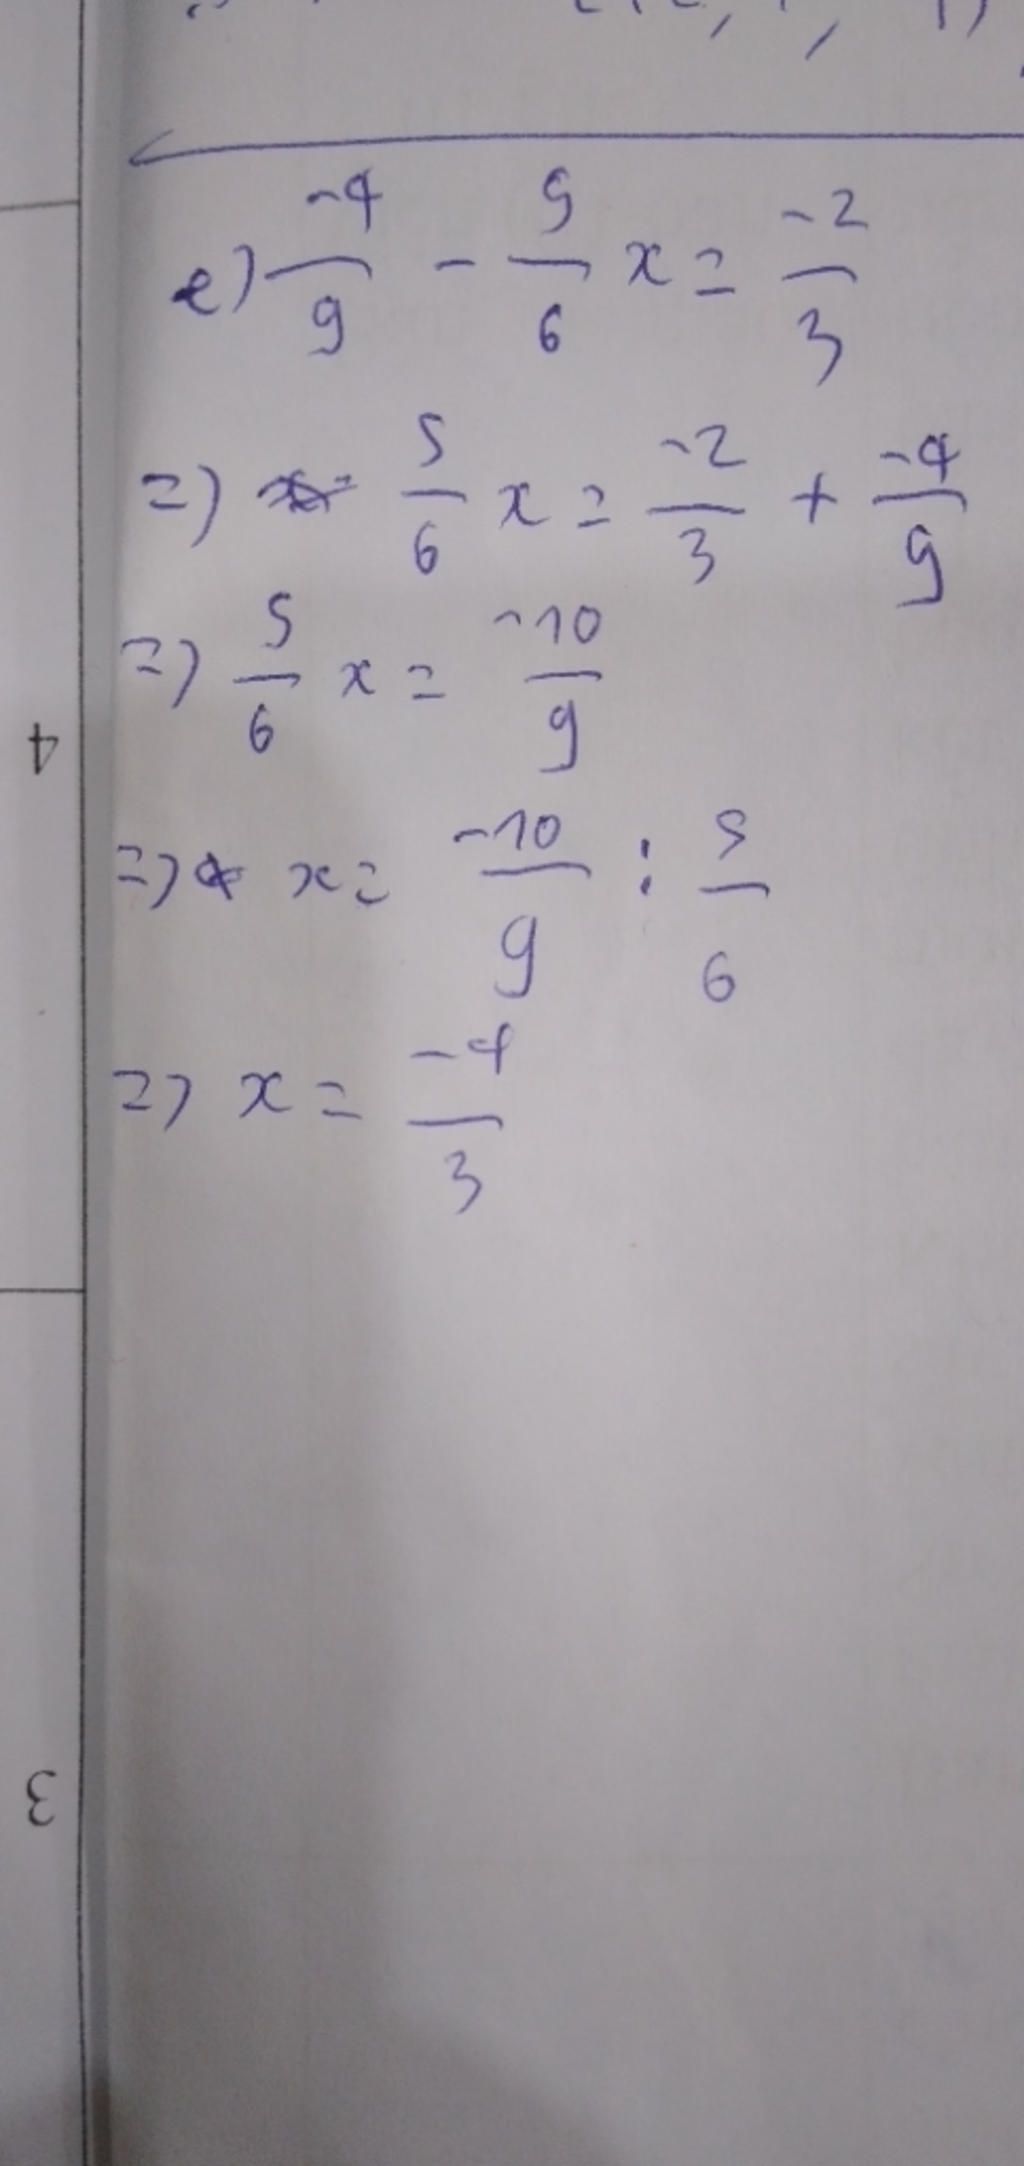 e) -4/9 - 5/6 x = -2/3
=) 5/6 x = -2/3 + -4/9
=) 5/6 x = -10/9
=) x = -10/9 : 5/6
=) x = -4/3
4
3